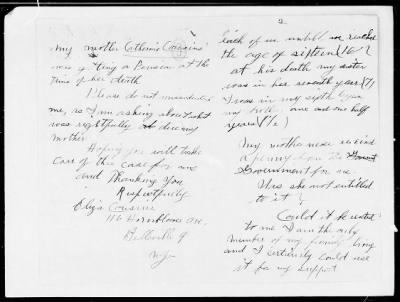 My mother Catherine Cousins
was getting a Pension at the
time of her death
Please do not misunderstand
me, as I am asking about what
was rightfully deceasing
mother
Hoping you will take
care of this case for me
and Thanking You
Respectfully
Eliza Cousins
116 Hornblower Ave.
Belleville 9
N.J.
2
each of us until we reached
the age of sixteen (16)
at his death my sister
was in her seventh year (7)
I was in my sixth year
my brother one and one half
years (1½)
My mother never received
a penny from the
Government for us
Was she not entitled
to it
Could it be
to me I am the only
member of my family living
and I certainly could use
it for my support